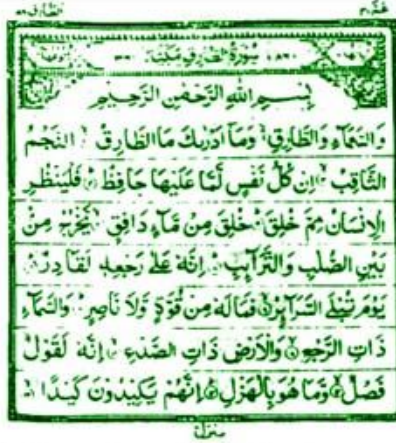 عم ٣٠ الطارق ٨٦
سُوْرَةُ الطَّارِقِ مَكِّيَّةٌ
بِسْمِ اللهِ الرَّحْمٰنِ الرَّحِيْمِ
وَالسَّمَآءِ وَالطَّارِقِ ۙ وَمَاۤ اَدْرٰىكَ مَا الطَّارِقُ ۙ النَّجْمُ
الثَّاقِبُ ۙ اِنْ كُلُّ نَفْسٍ لَّمَّا عَلَيْهَا حَافِظٌ ؕ فَلْيَنْظُرِ
الْاِنْسَانُ مِمَّ خُلِقَ ؕ خُلِقَ مِنْ مَّآءٍ دَافِقٍ ۙ يَّخْرُجُ مِنْۢ
بَيْنِ الصُّلْبِ وَالتَّرَآئِبِ ؕ اِنَّهٗ عَلٰى رَجْعِهٖ لَقَادِرٌ ؕ
يَوْمَ تُبْلَى السَّرَآئِرُ ۙ فَمَا لَهٗ مِنْ قُوَّةٍ وَّلَا نَاصِرٍ ؕ وَالسَّمَآءِ
ذَاتِ الرَّجْعِ ۙ وَالْاَرْضِ ذَاتِ الصَّدْعِ ۙ اِنَّهٗ لَقَوْلٌ
فَصْلٌ ۙ وَّمَا هُوَ بِالْهَزْلِ ؕ اِنَّهُمْ يَكِيْدُوْنَ كَيْدًا ۙ
منزل